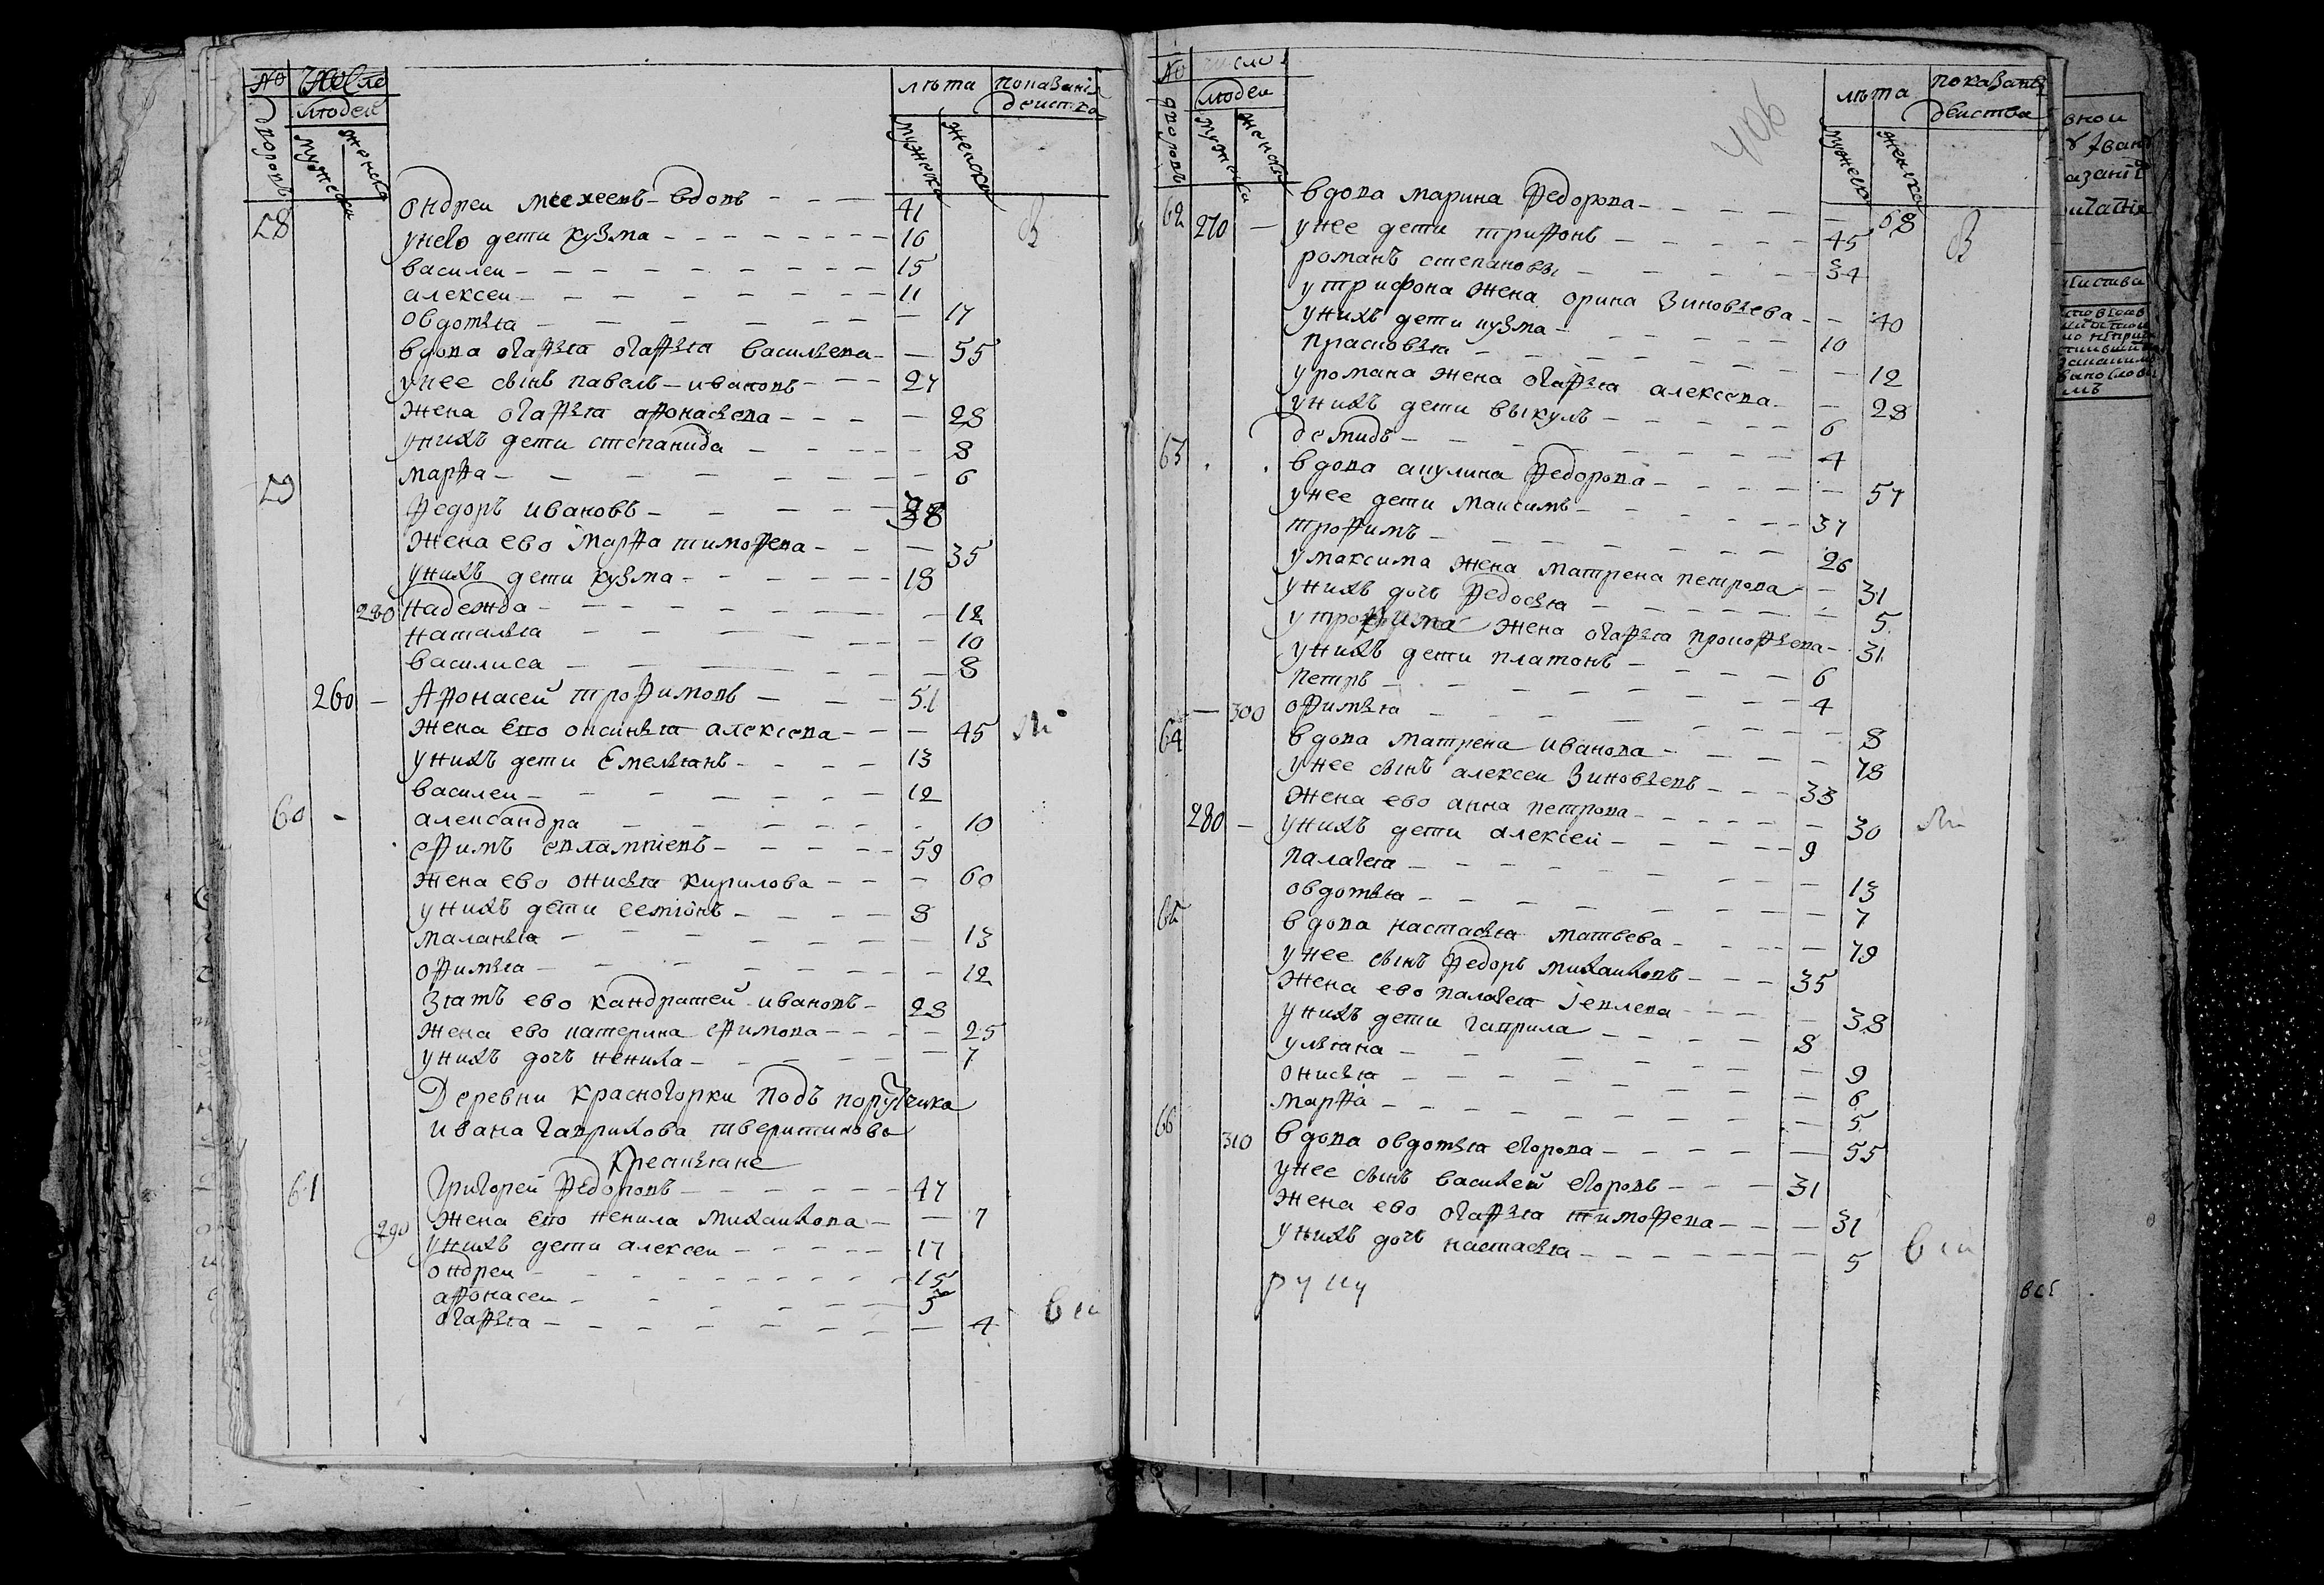 № Число лѣта показания
людей действа
дворовъ мужеска женска мужеска женска
58 Ондреи Мосеевъ вдовъ 41 В
унего дети Кузма 16
василеи 15
алексеи 11
овдотья 17
вдова огафья огафья васильева 55
унее сынъ павелъ ивановъ 27
жена огафья афонасьева 28
унихъ дети степанида 8
марфа 6
59 Федоръ ивановъ 38
жена ево марфа тимофева 35
унихъ дети кузма 18
280 надежда 12
наталья 10
василиса 8
260 Афонасей трофимовъ 51
жена ево оксинья алексева 45
унихъ дети Емельянъ 13
василеи 12
60 александра 10
ефимъ евлампіевъ 59
жена ево онисья кирилова 60
унихъ дети семіонъ 8
маланья 13
офимья 12
зять ево кандратей ивановъ 28
жена ево катерина ефимова 25
унихъ дочъ ненила 7
Деревни красногорки подъ порутчика
ивана гаврилова тверитинова
крестьяне
61 Григорей федоровъ 47
290 жена ево ненила михаилова 7
унихъ дети алексеи 17
ондреи 15
афонасеи 5
огафья 4
406
№ число лѣта показания
людеи действа
дворовъ мужеска женска мужеска женска
62 вдова марина федорова 68 В
270 унее дети трифонъ 45
романъ степановы 34
утрифона жена орина зиновьева 40
унихъ дети кузма 10
прасковья 12
уромана жена огафья алексева 28
унихъ дети выкулъ 6
демидъ 4
63 вдова акулина федорова 57
унее дети максимъ 37
трофимъ 26
умаксима жена матрена петрова 31
унихъ дочъ федосья 5
утрофима жена огафья прокофьева 31
унихъ дети платонъ 6
петръ 4
300 офимья 8
64 вдова матрена иванова 78
унее сынъ алексеи зиновьевъ 33
жена ево анна петрова 30
280 унихъ дети алексей 9
палагея 13
овдотья 7
65 вдова настасья матвева 79
унее сынъ федоръ михаиловъ 35
жена ево палагея іевлева 38
унихъ дети гаврила 8
ульяна 9
онисья 6
марфа 5
66 310 вдова овдотья егорова 55
унее сынъ василей егоровъ 31
жена ево огафья тимофева 31
унихъ дочъ настасья 5
руку